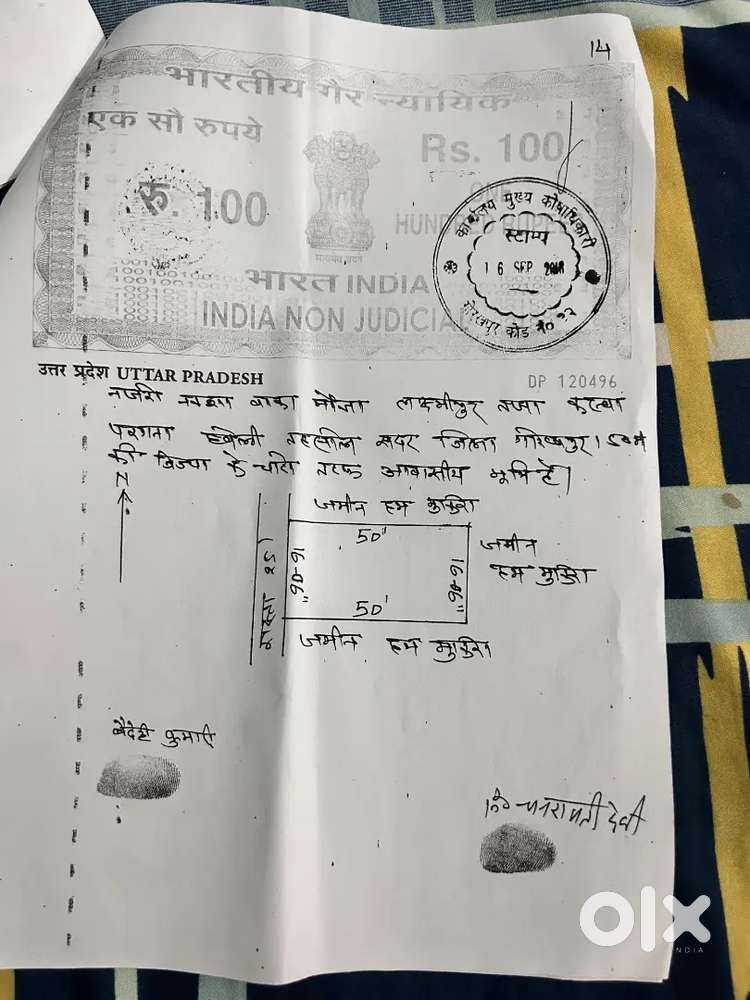 14
भारतीय गैर न्यायिक
एक सौ रुपये
Rs. 100
रु. 100
ONE
HUNDRED RUPEES
सत्यमेव जयते
भारत INDIA
INDIA NON JUDICIAL
कार्यालय मुख्य कोषाधिकारी
स्टाम्प
16 SEP
गोरखपुर कोड
उत्तर प्रदेश UTTAR PRADESH
DP 120496
नजरी नक्शा वाका मौजा लक्ष्मीपुर तप्पा कस्बा
परगना हवेली तहसील सदर जिला गोरखपुर।
की विज्या के चारो तरफ आवासीय भूमि है।
N
जमीन हम मुकिरा
50'
रास्ता
16-06"
16-06"
जमीन
हम मुकिरा
50'
जमीन हम मुकिरा
वैदेही कुमारी
देवी
olx
INDIA